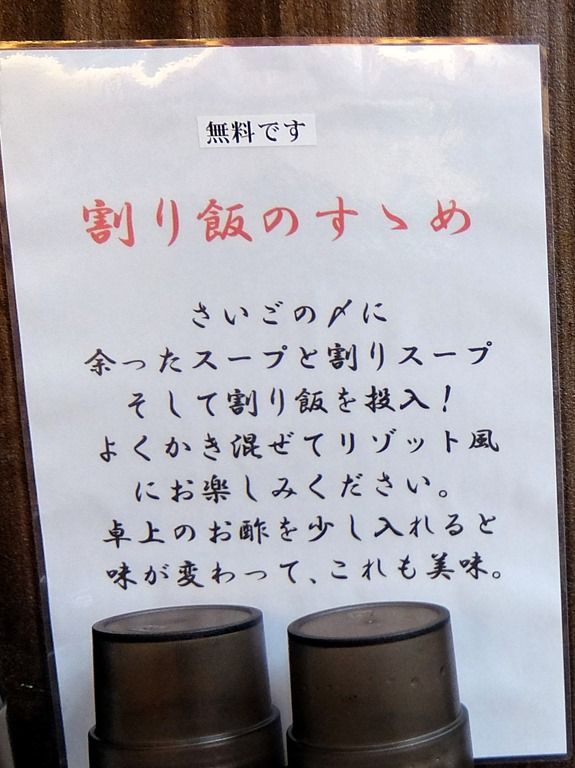 無料です
割り飯のすゝめ
さいごの〆に
余ったスープと割りスープ
そして割り飯を投入！
よくかき混ぜてリゾット風
にお楽しみください。
卓上のお酢を少し入れると
味が変わって、これも美味。